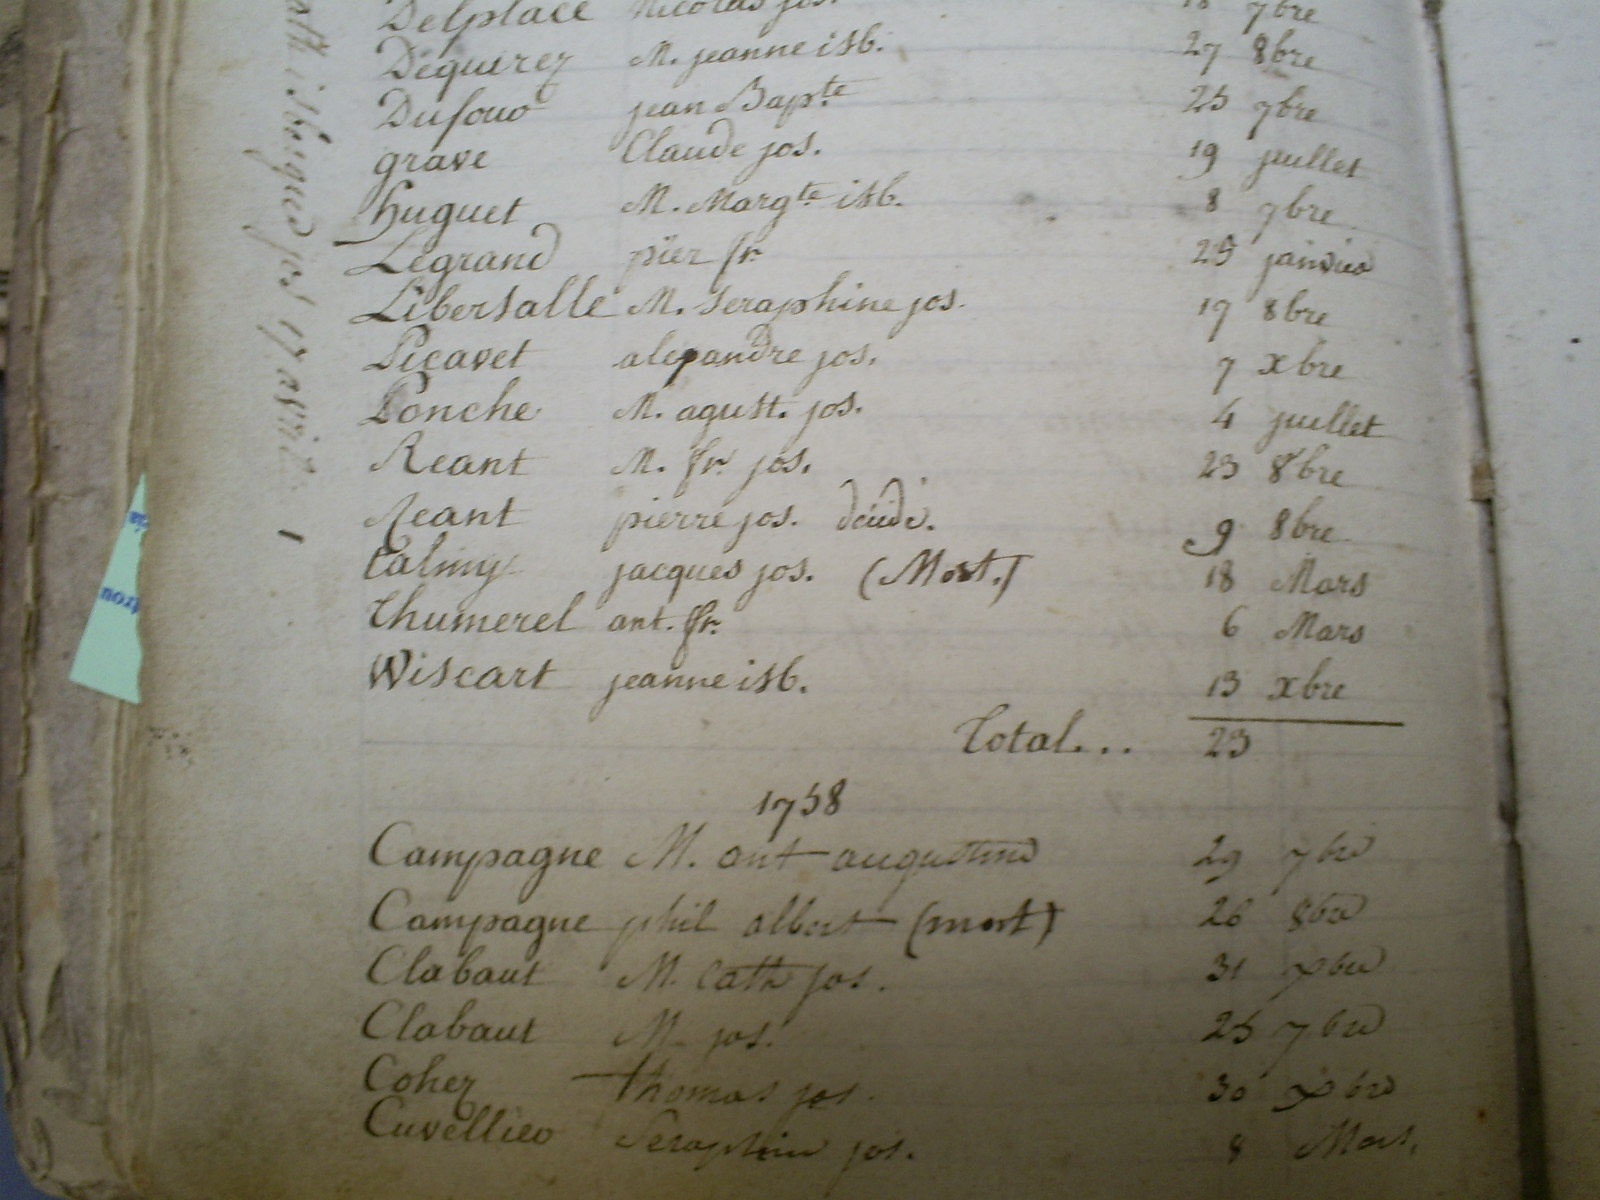 Delplace Nicolas jos. 18 7bre
Dequerez M. jeanne isb. 27 8bre
Dufour jean Bapte 25 7bre
grave Claude jos. 19 juillet
huguet M. Margte isb. 8 7bre
Legrand pier fr. 25 janvier
Libersalle M. Seraphine jos. 17 8bre
Picavet alexandre jos. 7 xbre
Ponche M. agust. jos. 4 juillet
Reant M. fr. jos. 23 8bre
Reant pierre jos. 9 8bre
talmy jacques jos. (Mort.) 18 Mars
Thumerel ant. fr. 6 Mars
Wiscart jeanne isb. 13 xbre
Total... 23
1758
Campagne M. ant augustine 29 7bre
Campagne phil albert (mort) 26 8bre
Clabaut M. Cath jos. 31 xbre
Clabaut M. jos. 25 7bre
Cohez thomas jos. 30 xbre
Cuvellier Seraphine jos. 8 Mars.
17 avril. 1